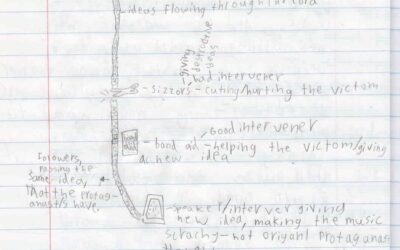 ideas flowing through the cord
giving
destructive
ideas
bad intervener
- sizzors - cutting/hurting the victom
Good intervener
- band aid - helping the victom/giving
a new idea
followers,
passing the
same idea,
Not the protag-
have.
- speaker/intervener giving
new idea, making the music
scrachy - not origanl